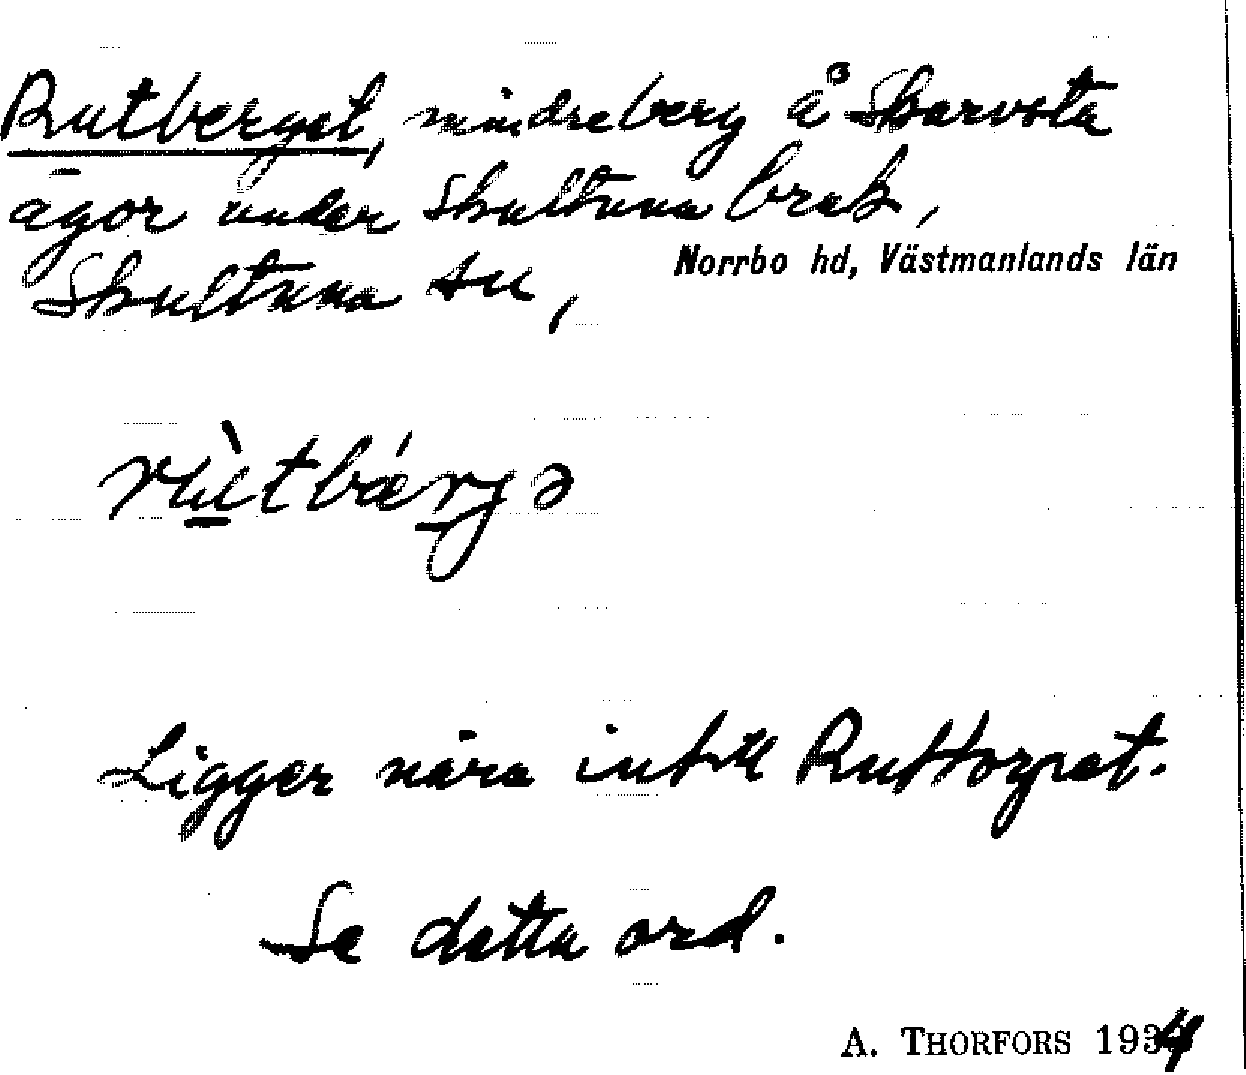 Rutberget, mindre berg å Skarvsta
ägor under Skultuna bruk,
Skultuna sn,
Norrbo hd, Västmanlands län
rùtbǽrjə
Ligger nära intill Ruttorpet.
Se detta ord.
A. THORFORS 1934